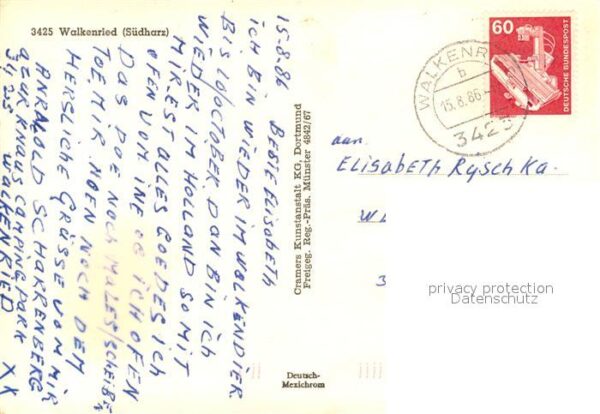 3425 Walkenried (Südharz)
15.8.86
BESTE ELISABETH
ICH BIN WIEDER IM WALKENDIER
BIS 10/OCTOBER. DAN BIN ICH
WIEDER IM HOLLAND SO MIT
MIR EST ALLES GOEDES ICH
OFEN VOM INE OB ICH OFEN
DAS DOE NOCH MALES/SCHEIBEN
TOE MIR. HOEN NOCH DEM
HERSLICHE GRÜSSE VOM MIR
ARNOLD SCHARRENBERG
AZUR KNAUS CAMPINGPARK
3425 WALKENRIED XX
Cramers Kunstanstalt KG, Dortmund
Freigeg. Reg.-Präs. Münster 4842/67
Deutsch-
Mexichrom
60
DEUTSCHE BUNDESPOST
WALKENR
b
15.8.86
3425
aan.
ELISABETH RYSCHKA.
WA
3
privacy protection
Datenschutz